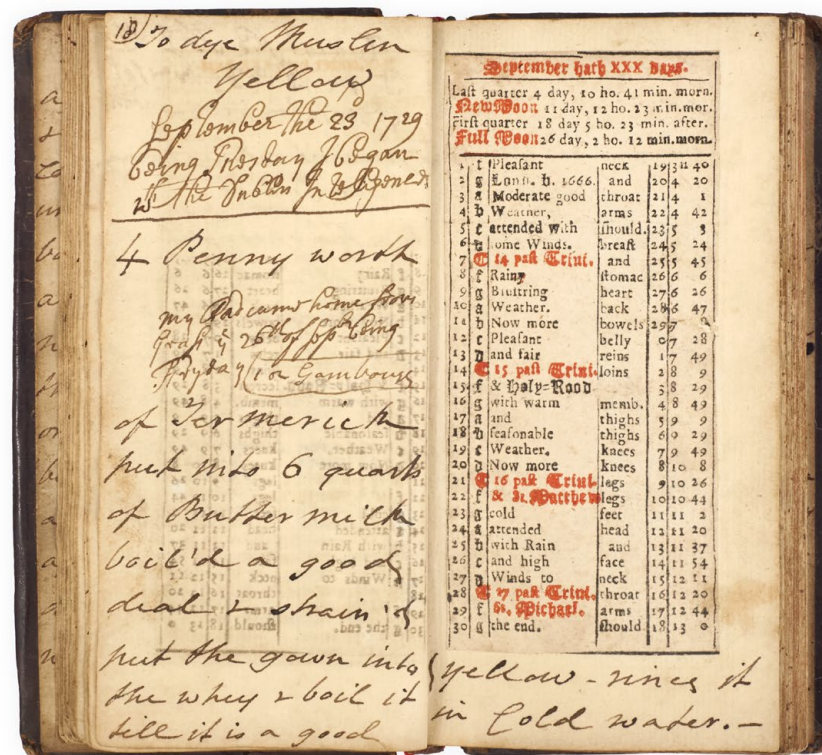 18
To dye Muslin
Yellow
September the 23 1729
being Tuesday I began
the Dublin
4 Penny worth
my Dad came home from
26th of being
Fryday
of Termerick
put into 6 quarts
of Butter milk
boil'd a good
deal & strain'd
put the gown into
the whey & boil it
till it is a good
September hath XXX Days.
Last quarter 4 day, 10 ho. 41 min. morn.
New Moon 11 day, 12 ho. 23 min. mor.
First quarter 18 day 5 ho. 23 min. after.
Full Moon 26 day, 2 ho. 12 min. morn.
1 f Pleasant neck 19 3 40
2 g Lond. b. 1666. and 20 4 20
3 a Moderate good throat 21 4 1
4 b Weather, arms 22 4 42
5 c attended with ſhould. 23 5 3
6 d ſome Winds. breaſt 24 5 24
7 E 14 paſt Trini. and 25 5 45
8 f Rainy ſtomac 26 6 6
9 g Bluſtring heart 27 6 26
10 a Weather. back 28 6 47
11 b Now more bowels 29 7
12 c Pleasant belly 0 7 28
13 d and fair reins 1 7 49
14 E 15 paſt Trini. loins 2 8 9
15 f & Holy-Rood 3 8 29
16 g with warm memb. 4 8 49
17 a and thighs 5 9 9
18 b ſeaſonable thighs 6 9 29
19 c Weather. knees 7 9 49
20 d Now more knees 8 10 8
21 E 16 paſt Trini. legs 9 10 26
22 f & St. Matthew legs 10 10 44
23 g cold feet 11 11 2
24 a attended head 12 11 20
25 b with Rain and 13 11 37
26 c and high face 14 11 54
27 d Winds to neck 15 12 11
28 E 17 paſt Trini. throat 16 12 20
29 f St. Michael. arms 17 12 44
30 g the end. ſhould 18 13 0
yellow - rince it
in Cold water. -